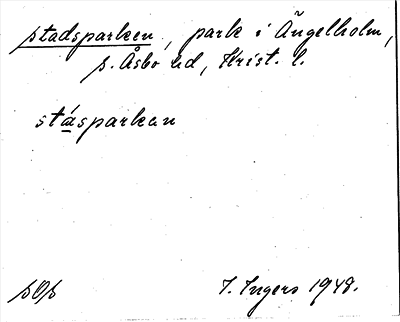 stadsparken, park i Ängelholm,
s. Åsbo hd, Krist. l.
stásparkan
I. Ingers 1948.